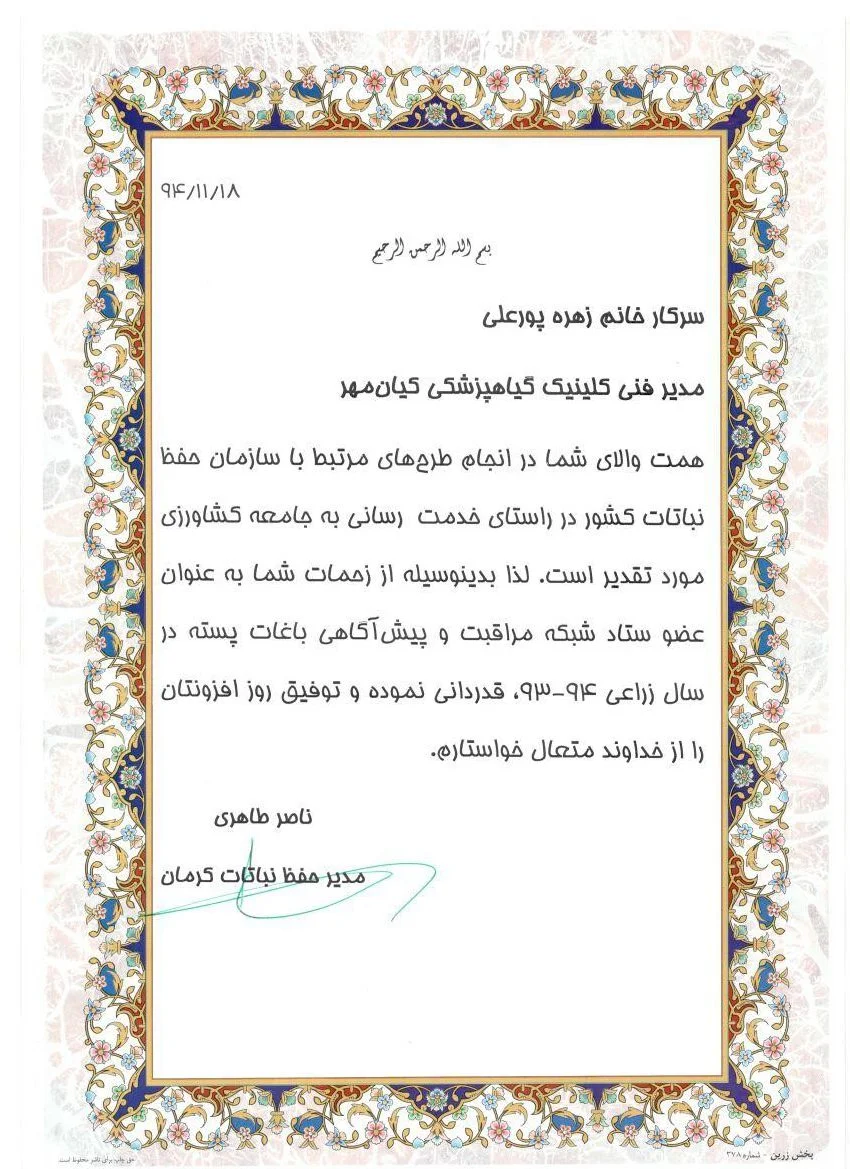 ۹۴/۱۱/۱۸
بسم الله الرحمن الرحیم
سرکار خانم زهره پورعلی
مدیر فنی کلینیک گیاهپزشکی کیان‌مهر
همت والای شما در انجام طرح‌های مرتبط با سازمان حفظ
نباتات کشور در راستای خدمت رسانی به جامعه کشاورزی
مورد تقدیر است. لذا بدینوسیله از زحمات شما به عنوان
عضو ستاد شبکه مراقبت و پیش‌آگاهی باغات پسته در
سال زراعی ۹۴-۹۳، قدردانی نموده و توفیق روز افزونتان
را از خداوند متعال خواستارم.
ناصر طاهری
مدیر حفظ نباتات کرمان
پخش زرین - شماره ۳۷۸
حق چاپ برای ناشر محفوظ است